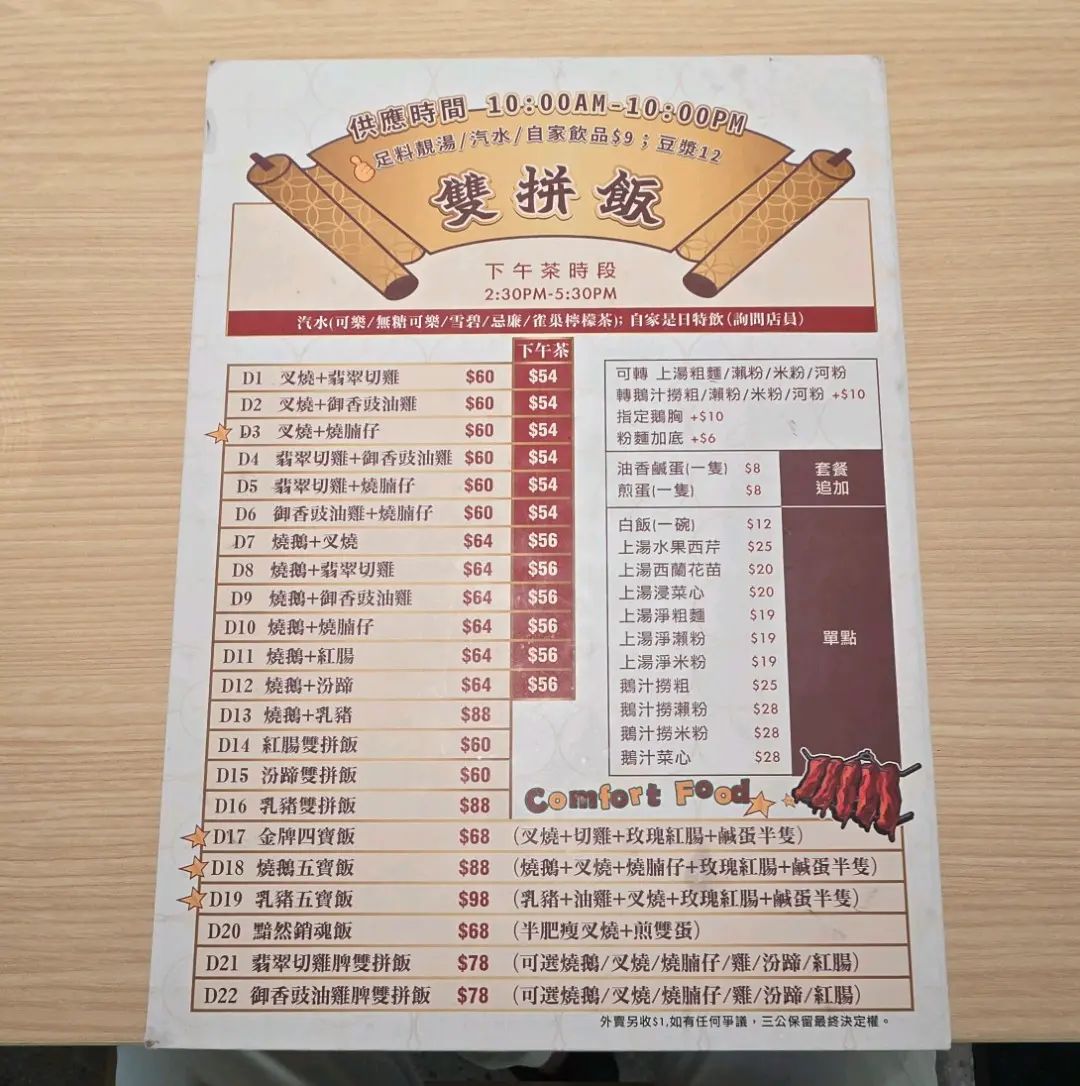 供應時間 10:00AM-10:00PM
足料靚湯/汽水/自家飲品$9；豆漿12
雙拼飯
下午茶時段
2:30PM-5:30PM
汽水(可樂/無糖可樂/雪碧/忌廉/雀巢檸檬茶)；自家是日特飲(詢問店員)
下午茶
D1 叉燒+翡翠切雞 $60 $54
D2 叉燒+御香豉油雞 $60 $54
D3 叉燒+燒腩仔 $60 $54
D4 翡翠切雞+御香豉油雞 $60 $54
D5 翡翠切雞+燒腩仔 $60 $54
D6 御香豉油雞+燒腩仔 $60 $54
D7 燒鵝+叉燒 $64 $56
D8 燒鵝+翡翠切雞 $64 $56
D9 燒鵝+御香豉油雞 $64 $56
D10 燒鵝+燒腩仔 $64 $56
D11 燒鵝+紅腸 $64 $56
D12 燒鵝+汾蹄 $64 $56
D13 燒鵝+乳豬 $88
D14 紅腸雙拼飯 $60
D15 汾蹄雙拼飯 $60
D16 乳豬雙拼飯 $88
可轉 上湯粗麵/瀨粉/米粉/河粉
轉鵝汁撈粗/瀨粉/米粉/河粉 +$10
指定鵝胸 +$10
粉麵加底 +$6
油香鹹蛋(一隻) $8
煎蛋(一隻) $8
套餐
追加
白飯(一碗) $12
上湯水果西芹 $25
上湯西蘭花苗 $20
上湯浸菜心 $20
上湯淨粗麵 $19
上湯淨瀨粉 $19
上湯淨米粉 $19
鵝汁撈粗 $25
鵝汁撈瀨粉 $28
鵝汁撈米粉 $28
鵝汁菜心 $28
單點
Comfort Food
D17 金牌四寶飯 $68 (叉燒+切雞+玫瑰紅腸+鹹蛋半隻)
D18 燒鵝五寶飯 $88 (燒鵝+叉燒+燒腩仔+玫瑰紅腸+鹹蛋半隻)
D19 乳豬五寶飯 $98 (乳豬+油雞+叉燒+玫瑰紅腸+鹹蛋半隻)
D20 黯然銷魂飯 $68 (半肥瘦叉燒+煎雙蛋)
D21 翡翠切雞髀雙拼飯 $78 (可選燒鵝/叉燒/燒腩仔/雞/汾蹄/紅腸)
D22 御香豉油雞髀雙拼飯 $78 (可選燒鵝/叉燒/燒腩仔/雞/汾蹄/紅腸)
外賣另收$1,如有任何爭議，三公保留最終決定權。